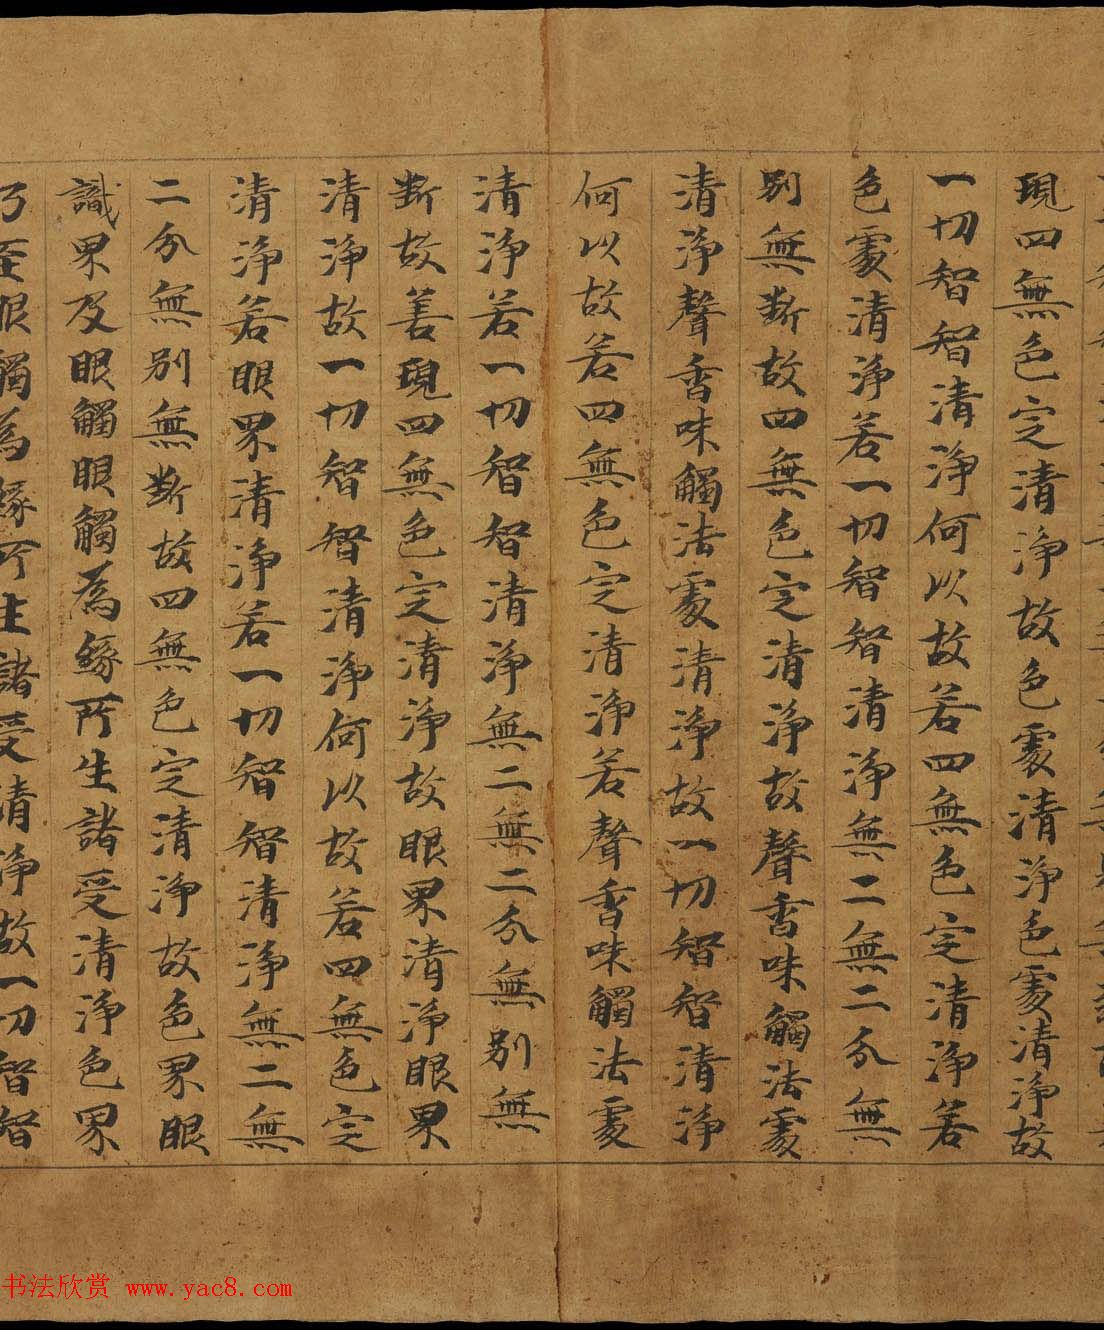 現四無色定清淨故色處清淨色處清淨故
一切智智清淨何以故若四無色定清淨若
色處清淨若一切智智清淨無二無二分無
別無斷故四無色定清淨故聲香味觸法處
清淨聲香味觸法處清淨故一切智智清淨
何以故若四無色定清淨若聲香味觸法處
清淨若一切智智清淨無二無二分無別無
斷故善現四無色定清淨故眼界清淨眼界
清淨故一切智智清淨何以故若四無色定
清淨若眼界清淨若一切智智清淨無二無
二分無別無斷故四無色定清淨故色界眼
識界及眼觸眼觸為緣所生諸受清淨色界
乃至眼觸為緣所生諸受清淨故一切智智
书法欣赏 www.yac8.com